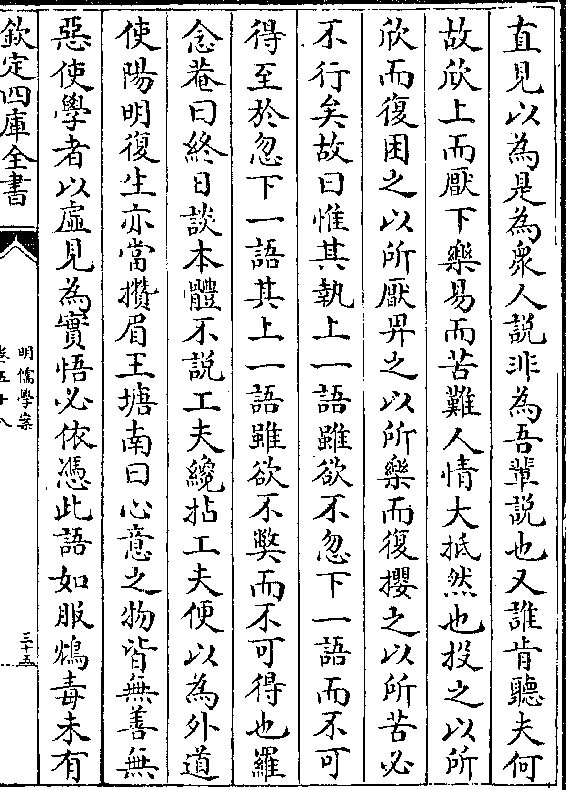 直見以為是為衆人說非為吾輩說也又誰肯聽夫何
故欣上而厭下樂易而苦難人情大抵然也投之以所
欣而復困之以所厭畀之以所樂而復攖之以所苦必
不行矣故曰惟其執上一語雖欲不忽下一語而不可
得至於忽下一語其上一語雖欲不弊而不可得也羅
念菴曰終日談本體不說工夫纔拈工夫便以為外道
使陽明復生亦當攢眉王塘南曰心意之物皆無善無
惡使學者以虛見為實悟必依憑此語如服鴆毒未有
欽定四庫全書
明儒學案
卷五十八
三十五